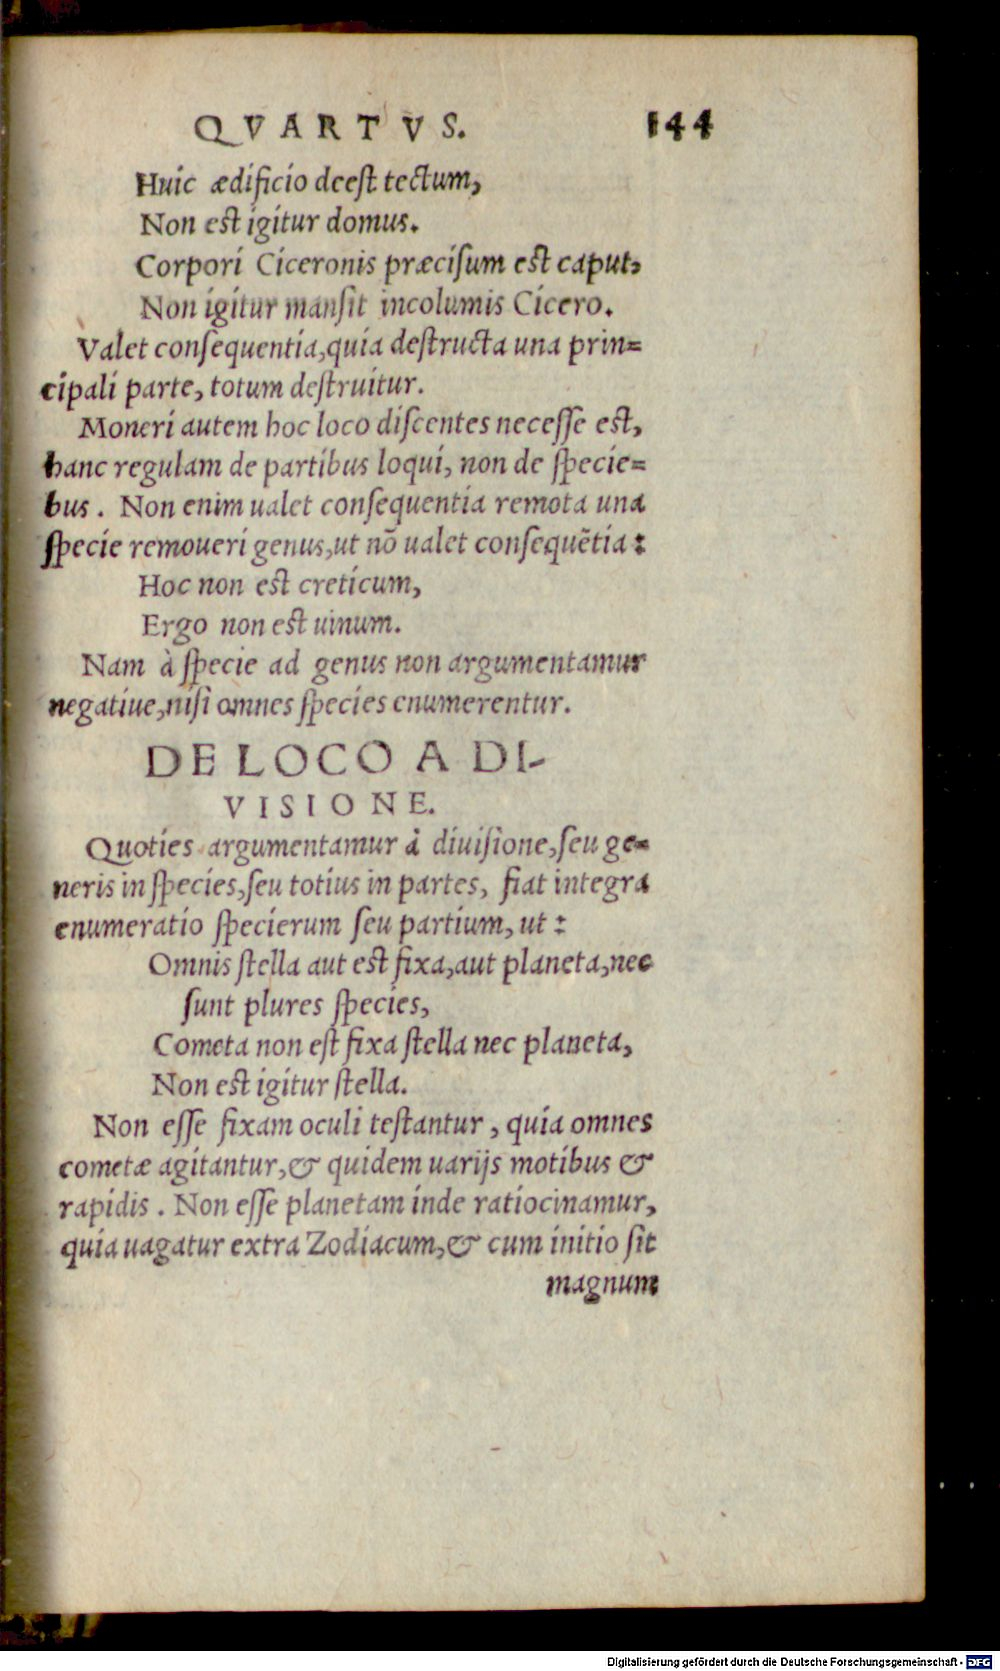 QVARTVS. 144
Huic ædificio deeſt tectum,
Non est igitur domus.
Corpori Ciceronis præciſum est caput,
Non igitur manſit incolumis Cicero.
Valet conſequentia, quia deſtructa una prin=
cipali parte, totum deſtruitur.
Moneri autem hoc loco diſcentes neceſſe est,
hanc regulam de partibus loqui, non de ſpecie=
bus. Non enim ualet conſequentia remota una
ſpecie remoueri genus, ut nõ ualet conſequẽtia:
Hoc non est creticum,
Ergo non est uinum.
Nam à ſpecie ad genus non argumentamur
negatiue, niſi omnes ſpecies enumerentur.
DE LOCO A DI-
VISIONE.
Quoties argumentamur à diuiſione, ſeu ge=
neris in ſpecies, ſeu totius in partes, fiat integra
enumeratio ſpecierum ſeu partium, ut:
Omnis ſtella aut est fixa, aut planeta, nec
ſunt plures ſpecies,
Cometa non eſt fixa ſtella nec planeta,
Non est igitur ſtella.
Non eſſe fixam oculi teſtantur, quia omnes
cometæ agitantur, & quidem uarijs motibus &
rapidis. Non eſſe planetam inde ratiocinamur,
quia uagatur extra Zodiacum, & cum initio ſit
magnum
Digitalisierung gefördert durch die Deutsche Forschungsgemeinschaft - DFG